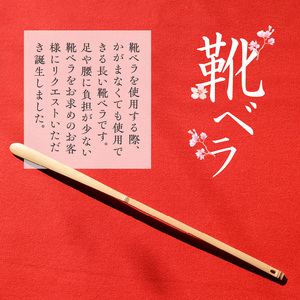 靴ベラ
靴ベラを使用する際、
かがまなくても使用で
きる長い靴ベラです。
足や腰に負担が少ない
靴ベラをお求めのお客
様にリクエストいただ
き誕生しました。